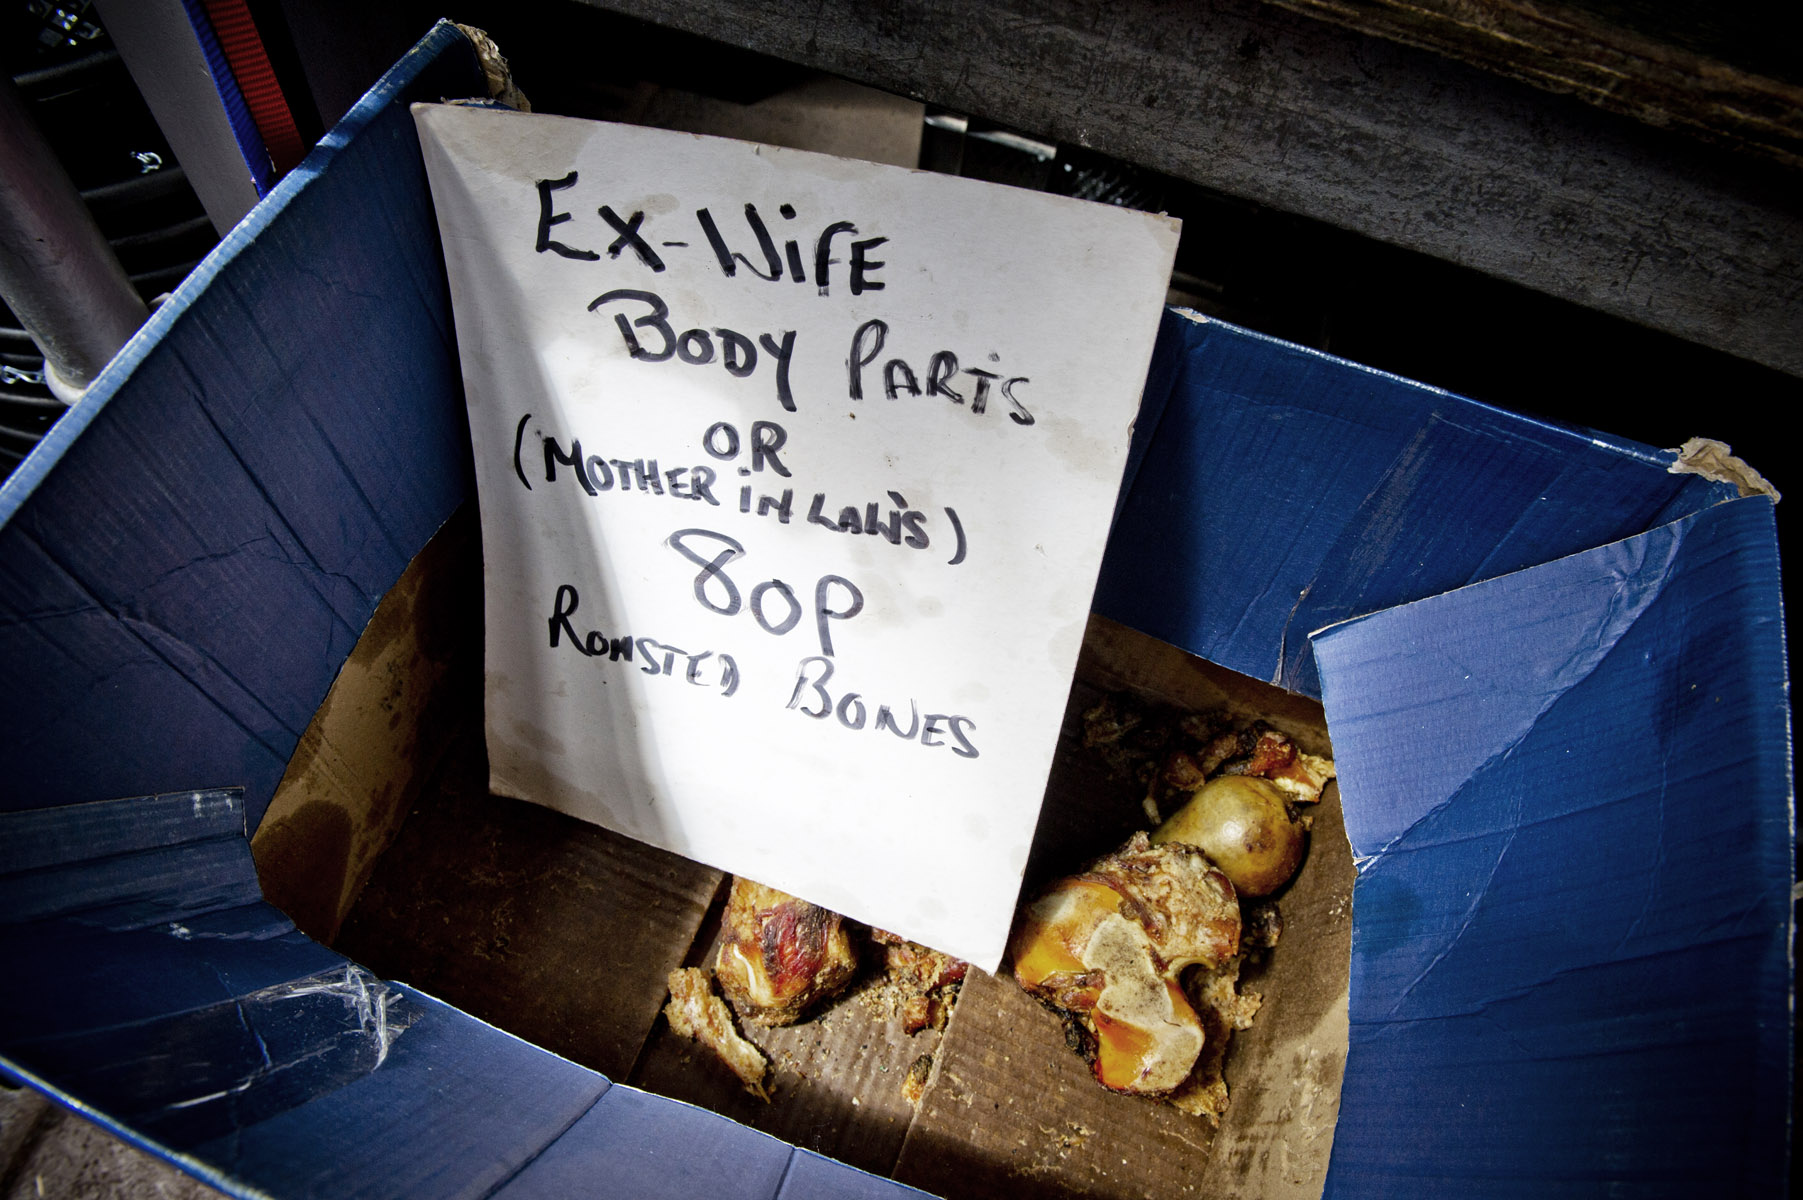 Ex-Wife
Body Parts
OR
(Mother in Law's)
80p
Roasted Bones